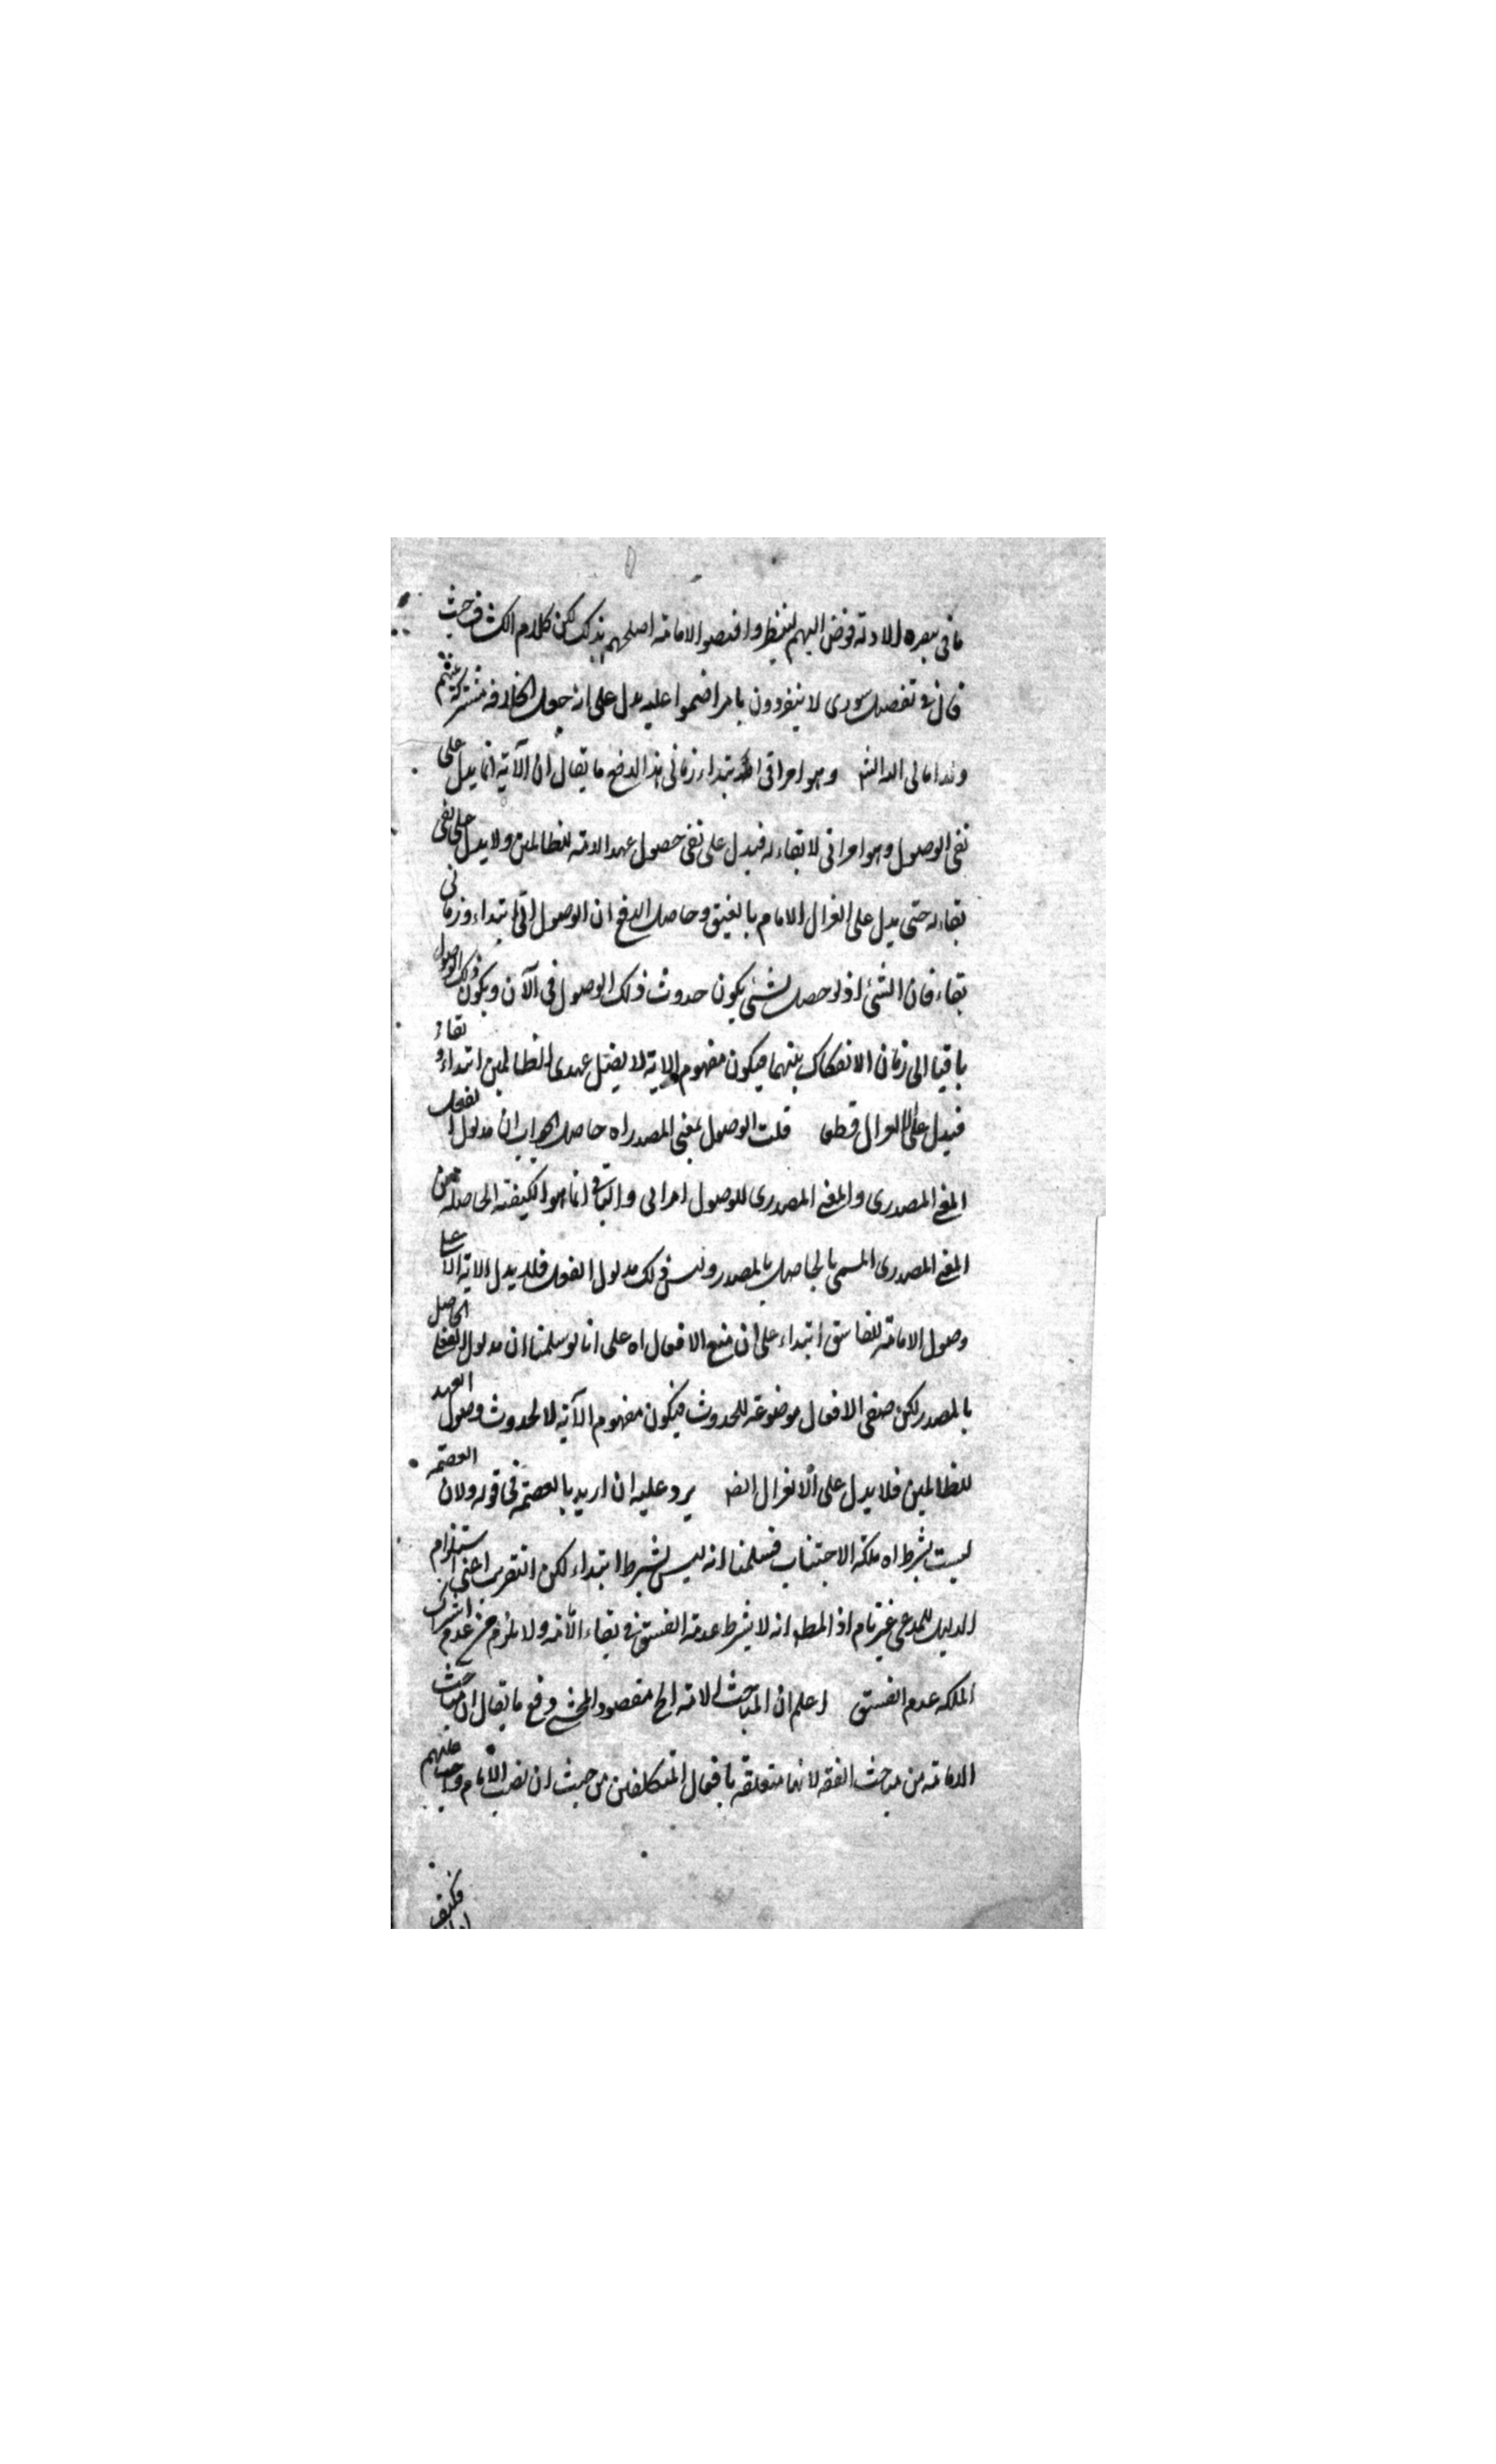 فوض اليهم لينظروا فنصبوا الامامة اصلحهم بذلك لكن كلام الشـ حيث
قال لا ينفردون بامر عليه يدل على انه جعل الخلافة مشتركة بينهم
وهو امر آنى ابتداء زمانى هذا لدفع ما يقال ان الآية انما يدل على
نفى الوصول وهو امر انى لا بقاء له فيدل على نفى حصول عهد الامامة للظالمين ولا يدل على نفى
بقاءه حتى يدل على انعزال الامام بالفسق وحاصل الدفع ان الوصول آنى ابتداء وزمانى
بقاء فان الشئ اذا وصل لشئ يكون حدوث ذلك الوصول فى الآن ويكون ذلك الوصول
باقيا الى زمان الانفكاك بينهما فيكون مفهوم الاية لا يصل عهدى الظالمين ابتداء وبقاء
فيدل على الانعزال قطعا قلت الوصول بمعنى المصدر اه حاصل الجواب ان مدلول الفعل
المعنى المصدرى والمعنى المصدرى للوصول امر آنى والباقى انما هو الكيفية الحاصلة من
المعنى المصدرى المسمى بالحاصل بالمصدر وليس ذلك مدلول الفعل فلا يدل الاية الا على
وصول الامامة للفاسق ابتداء على ان صيغ الافعال اه على انا لو سلمنا ان مدلول الفعل الحاصل
بالمصدر لكن صيغ الافعال موضوعة للحدوث فيكون مفهوم الآية لا لحدوث وصول العهد
للظالمين فلا يدل على الانعزال ايضا يرد عليه ان اريد بالعصمة فى قوله ولان العصمة
ليست بشرط اه ملكة الاجتناب فسلمنا انه ليس بشرط ابتداء لكن التقريب اعنى استلزام
الدليل للمدعى غير تام اذ المط انه لا يشرط عدم الفسق فى بقاء الامامة ولا يلزم من عدم اشتراط
الملكة عدم الفسق اعلم ان المباحث الامامة الخ مقصود المحشى دفع ما يقال ان مباحث
الامامة من مباحث الفقه لانها متعلقة بافعال المتكلفين من حيث ان نصب الامام واجب عليهم
فكيف